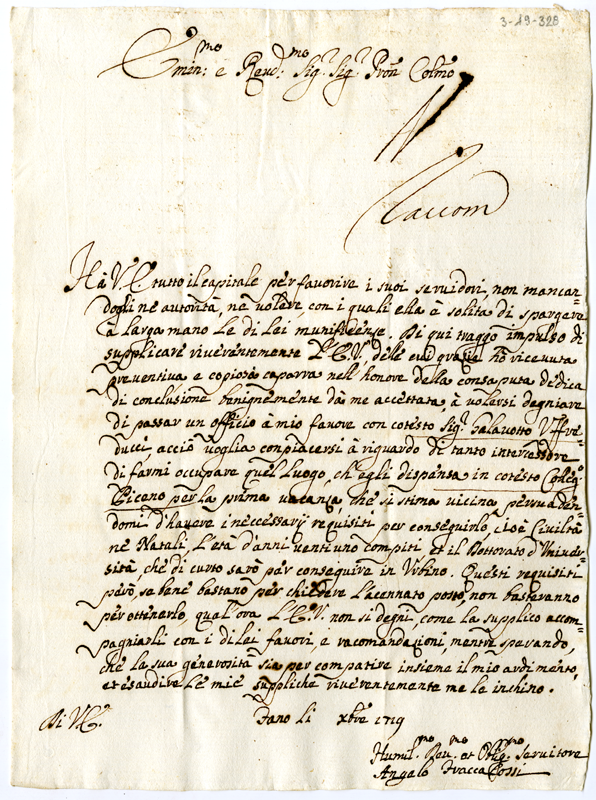 3-19-328
Emin:mo e Revd:mo Sig.r Sig.r Pron Colmo
Raccom
Hà V.E. tutto il capitale per favorire i suoi servidori, non mancan=
dogli nè autorità, nè volere, con i quali ella è solita di spargere
à larga mano le di Lei munificense. Di qui traggo impulso di
supplicare riverentemente l'E.V. delle cui grazie hò ricevuta
preventiva e copiosa caparra nell'honore della consaputa dedica
di conclusione benignemente dà me accettata, à volersi degniare
di passar un officio à mio favore con cotesto Sig.r Galavotto Uffre=
ducci, acciò voglia conpiacersi à riguardo di tanto intercessore
di farmi occupare quel luogo, ch'egli dispensa in cotesto Colleg.o
Piceno per la prima vacanza, che si stima vicina, persuaden=
domi d'havere i neccessarij requisiti per conseguirlo, cioè Civiltà
ne Natali, l'età d'anni vent'uno compiti, et il Dottorato d'Univer=
sità che di curto sarò per conseguire in Urbino. Questi requisiti
però, se bene bastano per chiedere l'accennato posto, non basteranno
per ottenerlo, qual'ora l'E.V. non si degni, come la supplico accom=
pagniarli con i di lei favori, e racomandazioni, mentre sperando,
che la sua generosità sia per compatire insieme il mio ardimento,
et esaudire le mie suppliche riverentemente me le inchino.
Di V.E.
Fano li xbre 1719
Humil.mo Rev.mo et Oblig.mo Servitore
Angelo Fracca Rossi